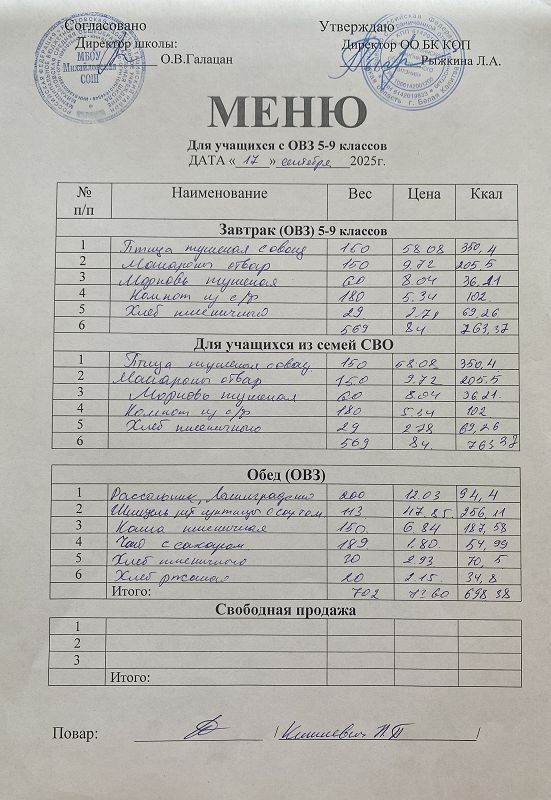 Согласовано Утверждаю
Директор школы: Директор ОО БК КОП
О.В.Галацан Рыжкина Л.А.
МБОУ
Михайловская
СОШ
МЕНЮ
Для учащихся с ОВЗ 5-9 классов
ДАТА « 17 » сентября 2025г.
№ п/п Наименование Вес Цена Ккал
Завтрак (ОВЗ) 5-9 классов
1 Птица тушеная с овощ 150 58.08 350,4
2 Макароны отвар 150 9.72 205.5
3 Морковь тушеная 60 8.04 36,21
4 Компот из с/ф 180 5.34 102
5 Хлеб пшеничного 29 2.78 69,26
6 569 84 763,37
Для учащихся из семей СВО
1 Птица тушеная с овощ 150 58.08 350,4
2 Макароны отвар 150 9.72 205.5
3 Морковь тушеная 60 8.04 36.21
4 Компот из с/ф 180 5.34 102
5 Хлеб пшеничного 29 2.78 69,26
6 569 84. 763 37
Обед (ОВЗ)
1 Рассольник 200 12 03 94,4
2 Шницель птицы с соусом 113 47.85 256,11
3 Каша пшеничная 150. 6.84 187,58
4 Чай с сахаром 189 1.80. 54,99
5 Хлеб пшеничного 30 2.93 70,5
6 Хлеб ржаной 20 2.15 34,8
Итого: 702 73 60 698 38
Свободная продажа
1
2
3
Итого:
Повар: / /